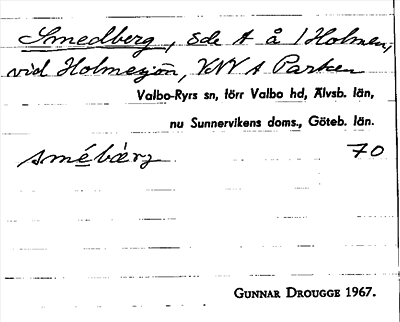 Smedberg, sde A å /Holmen,
vid Holmesjön, VNV A Parken
Valbo-Ryrs sn, förr Valbo hd, Älvsb. län,
nu Sunnervikens doms., Göteb. län.
smébærg 70
GUNNAR DROUGGE 1967.